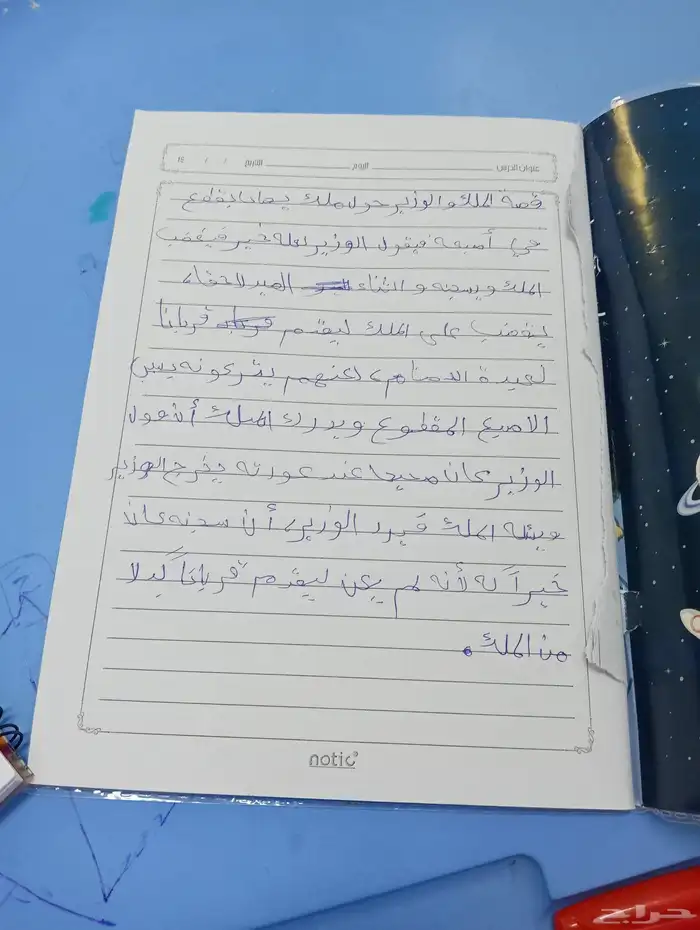 عنوان الدرس اليوم التاريخ ١٤
قصة الملك والوزير حول ملك يصاب بقطع
في أصبعه فيقول الوزير لعله خير فيغضب
الملك ويسجنه و اثناء الصيد لاحقاء
يغضب على الملك ليقدم قربانا
لعبدة الاصنام، لكنهم يتركونه بسبب
الاصبع المقطوع ويدرك الملك أن قول
الوزير كان صحيحا عند عودته يخرج الوزير
ويسئله الملك فيرد الوزير، أن سجنه كان
خيراً له لأنه لم يكن ليقدم قرباناً بدلا
من الملك.
notic
حراج